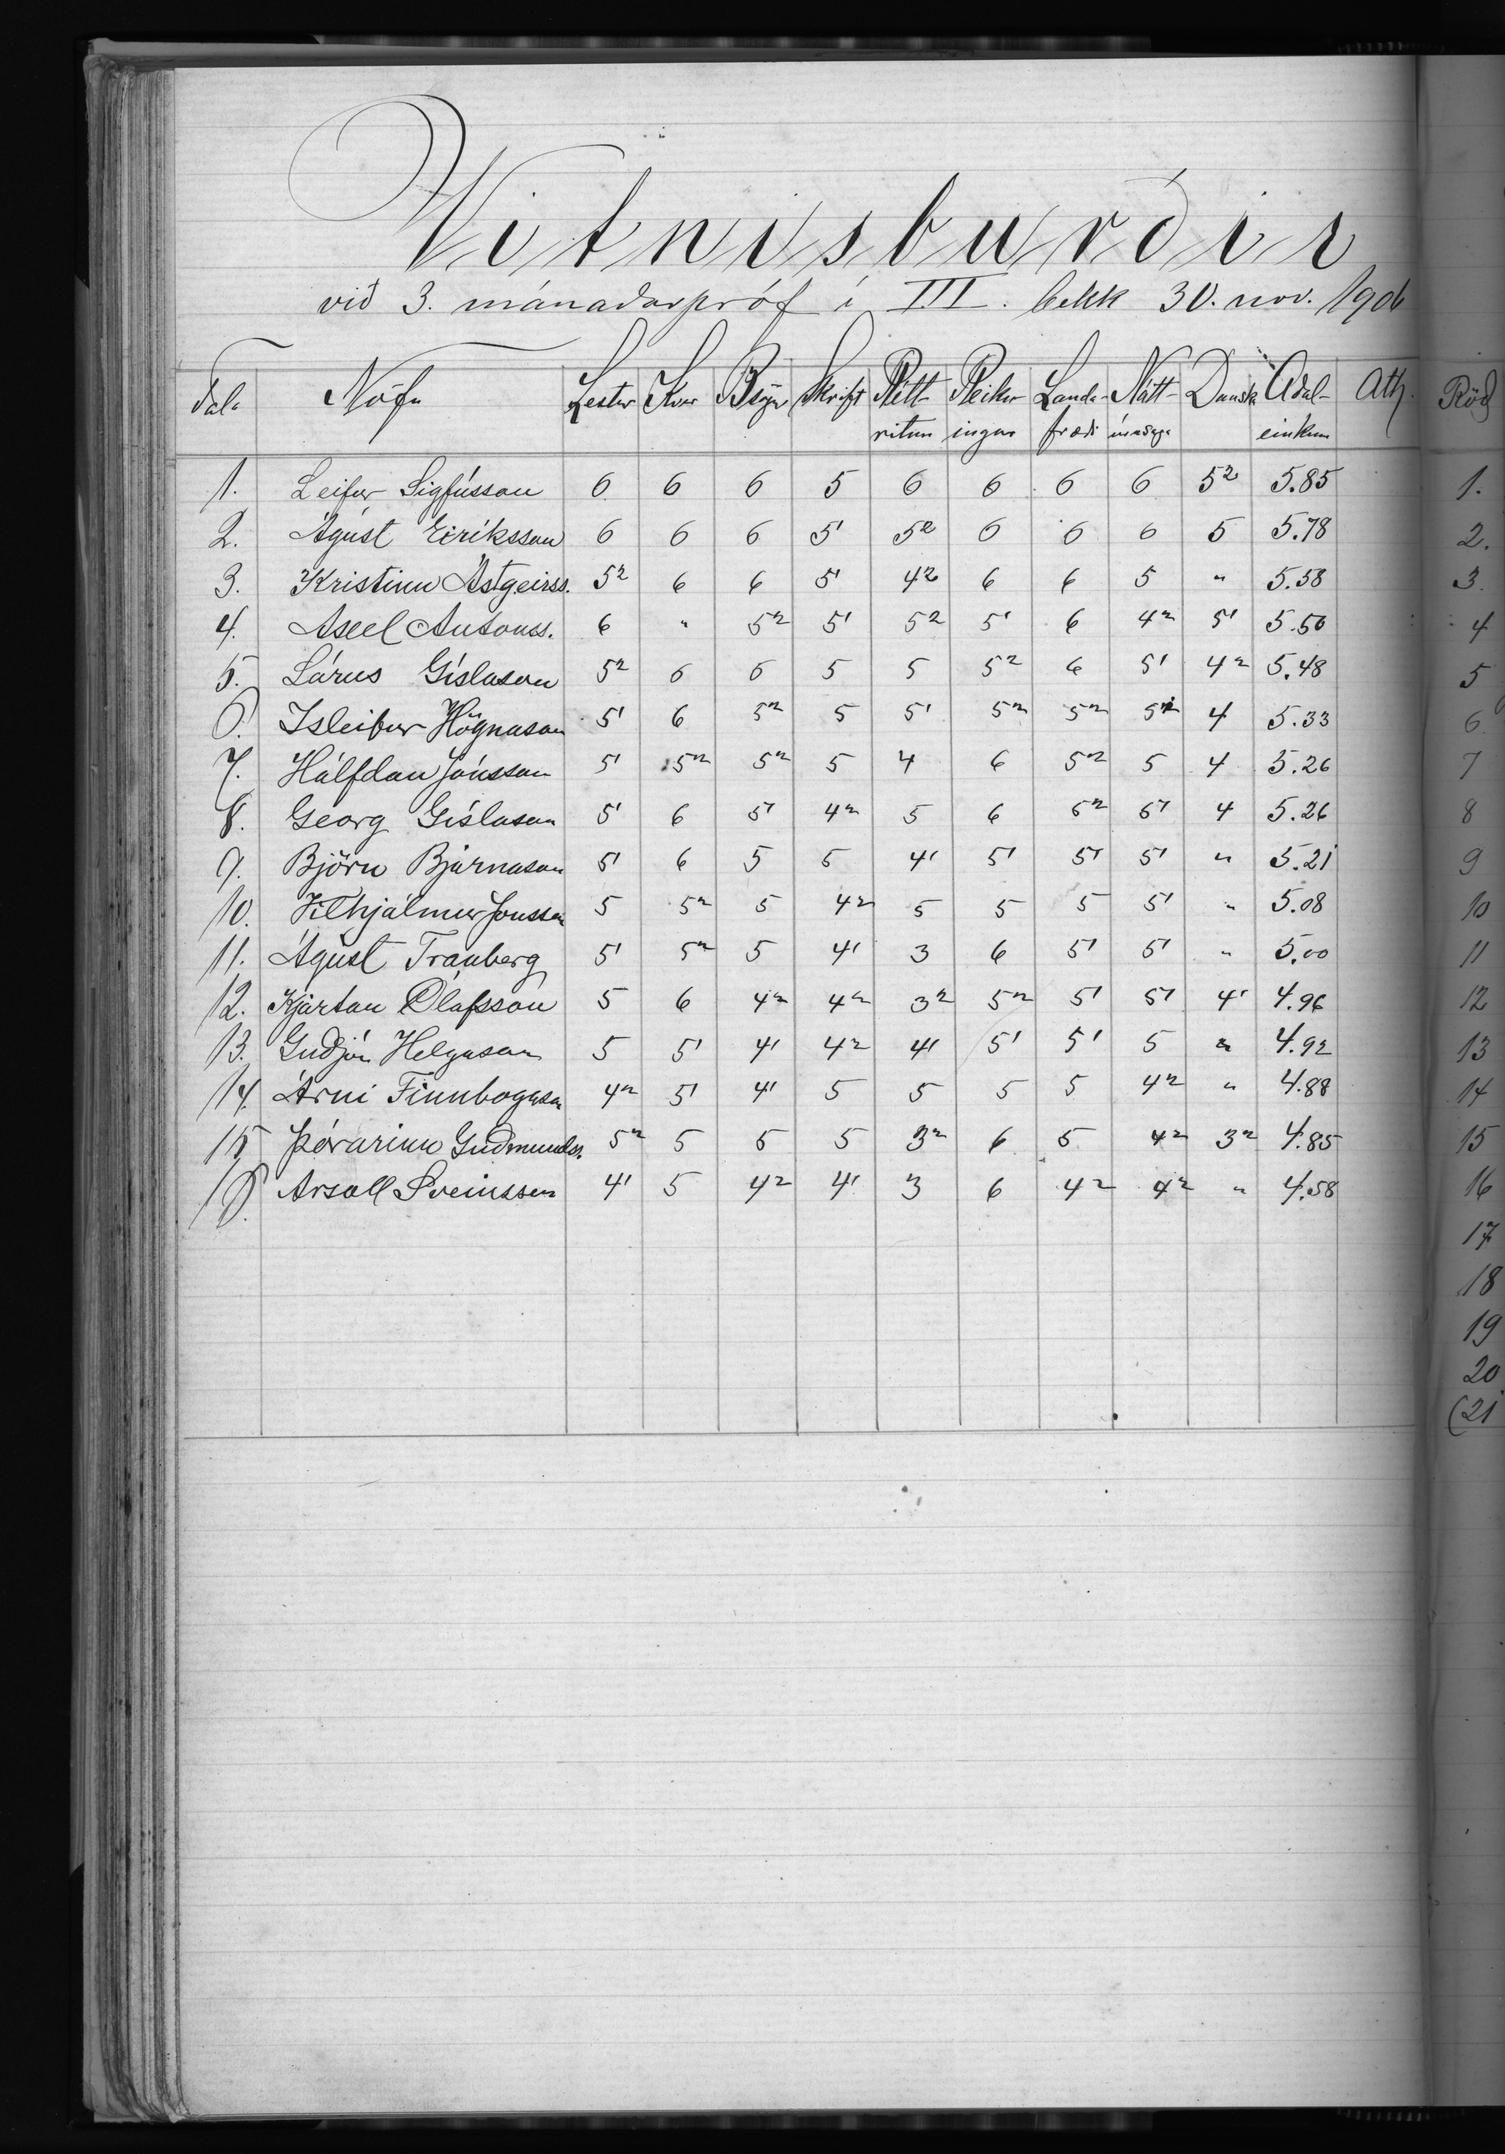 Vitnisburðir
við 3. mánaðarpróf í III. bekk 30. nov. 1906
Tala Nöfn Lestur Kver Bsögur Skrift Rétt- Reikn- Landa- Nátt- Dansk Aðal- Ath.
ritun ingur fræði úrusaga einkun
1. Leifur Sigfússon 6 6 6 5 6 6 6 6 5² 5.85
2. Ágúst Eiríksson 6 6 6 5' 5² 6 6 6 5 5.78
3. Kristinn Ástgeirss. 5² 6 6 5' 4² 6 6 5 " 5.58
4. Axel Antonss. 6 " 5² 5' 5² 5' 6 4² 5' 5.50
5. Lárus Gíslason 5² 6 6 5 5 5² 6 5' 4² 5.48
6. Ísleifur Högnason 5' 6 5² 5 5' 5² 5² 5² 4 5.33
7. Hálfdan Jónsson 5' 5² 5² 5 4 6 5² 5 4 5.26
8. Georg Gíslason 5' 6 5' 4² 5 6 5² 5' 4 5.26
9. Björn Bjarnason 5' 6 5 5 4' 5' 5' 5' " 5.21
10. Vilhjálmur Jonsson 5 5² 5 4² 5 5 5 5' " 5.08
11. Ágúst Tranberg 5' 5² 5 4' 3 6 5' 5' " 5.00
12. Kjartan Ólafsson 5 6 4² 4² 3² 5² 5' 5' 4' 4.96
13. Guðjón Helgason 5 5' 4' 4² 4' 5' 5' 5 " 4.92
14. Árni Finnbogason 4² 5' 4' 5 5 5 5 4² " 4.88
15. Þórarinn Guðmundss. 5² 5 5 5 3² 6 5 4² 3² 4.85
16. Arsæll Sveinsson 4' 5 4² 4' 3 6 4² 4² " 4.58
Röð
1.
2.
3.
4
5
6
7
8
9
10
11
12
13
14
15
16
17
18
19
20
(21